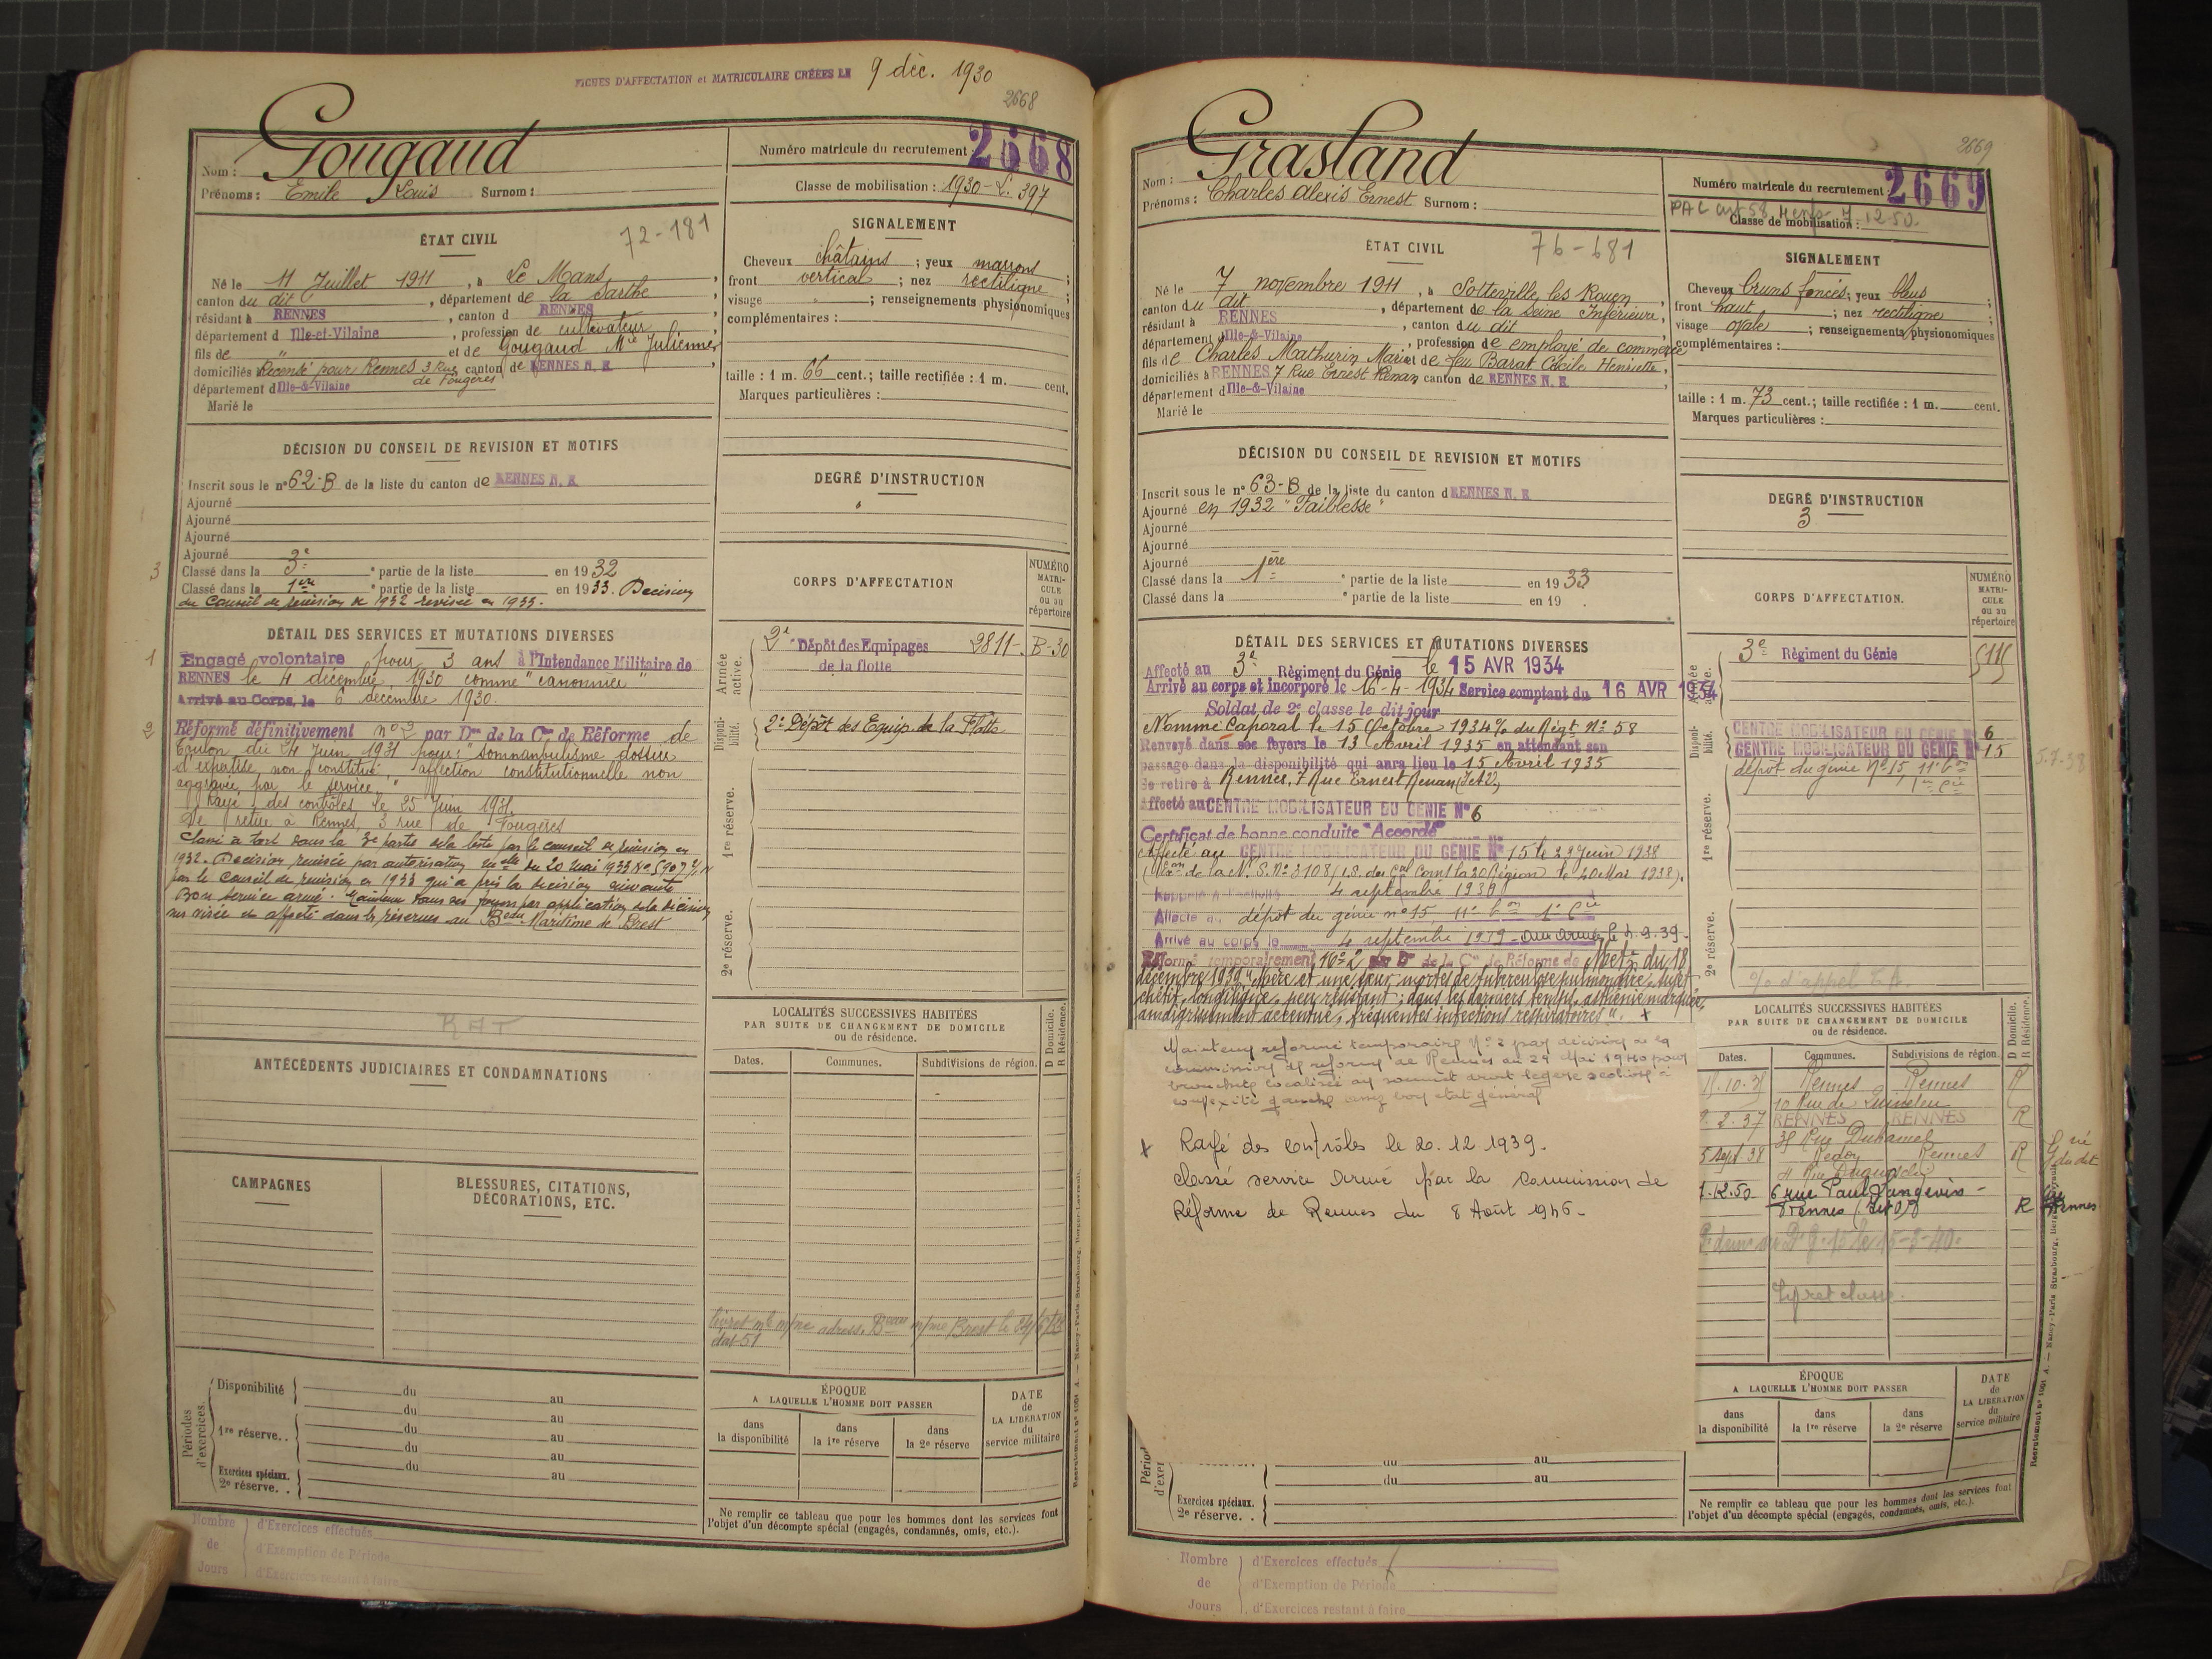 FICHES D'AFFECTATION et MATRICULAIRE CRÉÉES LE 9 déc. 1930
2668
Nom : Gougaud
Prénoms : Emile Louis Surnom :
Numéro matricule du recrutement 2668
Classe de mobilisation : 1930 - L. 397
ÉTAT CIVIL
72-181
Né le 11 Juillet 1911, à Le Mans,
canton du dit, département de la Sarthe,
résidant à RENNES, canton d RENNES
département d Ille-et-Vilaine, profession de cultivateur
fils de " et de Gougaud Mie Julienne,
domiciliés Recensé pour Rennes 3 Rue de Fougères canton de RENNES N. E
département d Ille-&-Vilaine
Marié le
SIGNALEMENT
Cheveux châtains ; yeux marrons ;
front vertical ; nez rectiligne ;
visage ; renseignements physionomiques
complémentaires :
taille : 1 m. 66 cent. ; taille rectifiée : 1 m. cent.
Marques particulières :
DÉCISION DU CONSEIL DE REVISION ET MOTIFS
Inscrit sous le n° 62-B de la liste du canton de RENNES N. E
Ajourné
Ajourné
Ajourné
Ajourné
3 Classé dans la 3e ° partie de la liste en 1932
Classé dans la 1ère ° partie de la liste en 1933. Decision
du Conseil de revision de 1932 revisée en 1933.
DEGRÉ D'INSTRUCTION
CORPS D'AFFECTATION
NUMÉRO MATRICULE ou au répertoire
DÉTAIL DES SERVICES ET MUTATIONS DIVERSES
1 Engagé volontaire pour 3 ans à l'Intendance Militaire de
RENNES le 4 décembre 1930 comme "canonnier"
Arrivé au Corps, le 6 décembre 1930.
2 Réformé définitivement n° 2 par Don de la Con de Réforme de
Toulon du 24 Juin 1931 pour : "Somnambulisme dossier
d'expertise non constitué, affection constitutionnelle non
aggravée par le service"
Rayé des contrôles le 25 Juin 1931
Se retire à Rennes, 3 rue de Fougères
Classé à tort dans la 3e partie de la liste par le conseil de revision en
1932. Decision revisée par autorisation mlle du 20 mai 1933
par le Conseil de revision en 1933 qui a pris la decision suivante
Bon service armé. Maintenu dans ses foyers par application de la décision
sus visée et affecté dans les réserves au Beau Maritime de Brest
RAT
Armée active.
2e Dépôt des Equipages de la flotte 2811- B-30
Disponibilité.
2e Dépôt des Equip. de la Flotte
1re réserve.
2e réserve.
ANTÉCÉDENTS JUDICIAIRES ET CONDAMNATIONS
LOCALITÉS SUCCESSIVES HABITÉES
PAR SUITE DE CHANGEMENT DE DOMICILE
ou de résidence.
D Domicile.
R Résidence.
Dates. Communes. Subdivisions de région.
CAMPAGNES
BLESSURES, CITATIONS,
DÉCORATIONS, ETC.
Périodes d'exercices.
Disponibilité du au
du au
1re réserve. . du au
du au
Exercices spéciaux. du au
2e réserve. .
ÉPOQUE
A LAQUELLE L'HOMME DOIT PASSER
dans la disponibilité
dans la 1re réserve
dans la 2e réserve
DATE de LA LIBÉRATION du service militaire
Ne remplir ce tableau que pour les hommes dont les services font
l'objet d'un décompte spécial (engagés, condamnés, omis, etc.).
Nombre de Jours
d'Exercices effectués
d'Exemption de Période
d'Exercices restant à faire
2669
Nom : Grasland
Prénoms : Charles Alexis Ernest Surnom :
Numéro matricule du recrutement : 2669
Classe de mobilisation :
ÉTAT CIVIL
76-681
Né le 7 novembre 1911, à Sotteville les Rouen,
canton du dit, département de la Seine Inférieure,
résidant à RENNES, canton du dit
département d Ille-&-Vilaine, profession de employé de commerce
fils de Charles Mathurin Marie et de feu Barat Cécile Henriette,
domiciliés à RENNES 7 Rue Ernest Renan canton de RENNES N. E
département d Ille-&-Vilaine
Marié le
SIGNALEMENT
Cheveux bruns foncés ; yeux bleus ;
front haut ; nez rectiligne ;
visage ovale ; renseignements physionomiques
complémentaires :
taille : 1 m. 73 cent. ; taille rectifiée : 1 m. cent.
Marques particulières :
DÉCISION DU CONSEIL DE REVISION ET MOTIFS
Inscrit sous le n° 63-B de la liste du canton d RENNES N. E
Ajourné en 1932 "Faiblesse"
Ajourné
Ajourné
Ajourné
Classé dans la 1ère ° partie de la liste en 1933
Classé dans la ° partie de la liste en 19 .
DEGRÉ D'INSTRUCTION
3
CORPS D'AFFECTATION.
NUMÉRO MATRICULE ou au répertoire
DÉTAIL DES SERVICES ET MUTATIONS DIVERSES
Affecté au 3e Régiment du Génie le 15 AVR 1934
Arrivé au corps et incorporé le 16-4-1934 Service comptant du 16 AVR 1934
Soldat de 2e classe le dit jour
Nommé Caporal le 15 Octobre 1934 % du Régt N° 58
Renvoyé dans ses foyers le 13 Avril 1935 en attendant son
passage dans la disponibilité qui aura lieu le 15 Avril 1935
Se retire à Rennes, 7 Rue Ernest Renan
Affecté au CENTRE MOBILISATEUR DU GENIE N° 6
Certificat de bonne conduite "Accordé"
Affecté au CENTRE MOBILISATEUR DU GENIE N° 15 le 23 Juin 1938
4 septembre 1939
Affecté au dépôt du génie n° 15, 11e bon 1e Cie
Arrivé au corps le 4 septembre 1939
Réformé temporairement N° 2 par Don de la Con de Réforme de Metz du 18
décembre 1939 "mère et une soeur mortes de tuberculose pulmonaire, sujet
chétif, longiligne, peu résistant ; dans les derniers temps, asthénie marquée,
amaigrissement accentué, fréquentes infections respiratoires". x
Maintenu réformé temporaire N° 2 par décision de la
commission de reforme de Rennes du 24 Mai 1940 pour
bronchite localisée au sommet droit légère scoliose à
convexité gauche assez bon état général
x Rayé des contrôles le 20.12.1939.
Classé service armé par la Commission de
Réforme de Rennes du 8 Août 1946.
3e Régiment du Génie 5115
Disponibilité.
CENTRE MOBILISATEUR DU GENIE N° 6
CENTRE MOBILISATEUR DU GENIE N° 15
dépôt du génie N° 15, 11e bon
1ere Cie
1re réserve.
2e réserve.
LOCALITÉS SUCCESSIVES HABITÉES
PAR SUITE DE CHANGEMENT DE DOMICILE
ou de résidence.
D Domicile.
R Résidence.
Dates. Communes. Subdivisions de région.
Rennes Rennes R
2.37 RENNES RENNES R
35 Rue Duhamel
5 Sept 38 Redon Rennes R
4 Rue Duguesclin
1.12.50 6 rue Paul Langevin -
Rennes R Rennes
Livret classe.
ÉPOQUE
A LAQUELLE L'HOMME DOIT PASSER
dans la disponibilité
dans la 1re réserve
dans la 2e réserve
DATE de LA LIBÉRATION du service militaire
du au
du au
Exercices spéciaux.
2e réserve. .
Ne remplir ce tableau que pour les hommes dont les services font
l'objet d'un décompte spécial (engagés, condamnés, omis, etc.).
Nombre de Jours
d'Exercices effectués
d'Exemption de Période
d'Exercices restant à faire